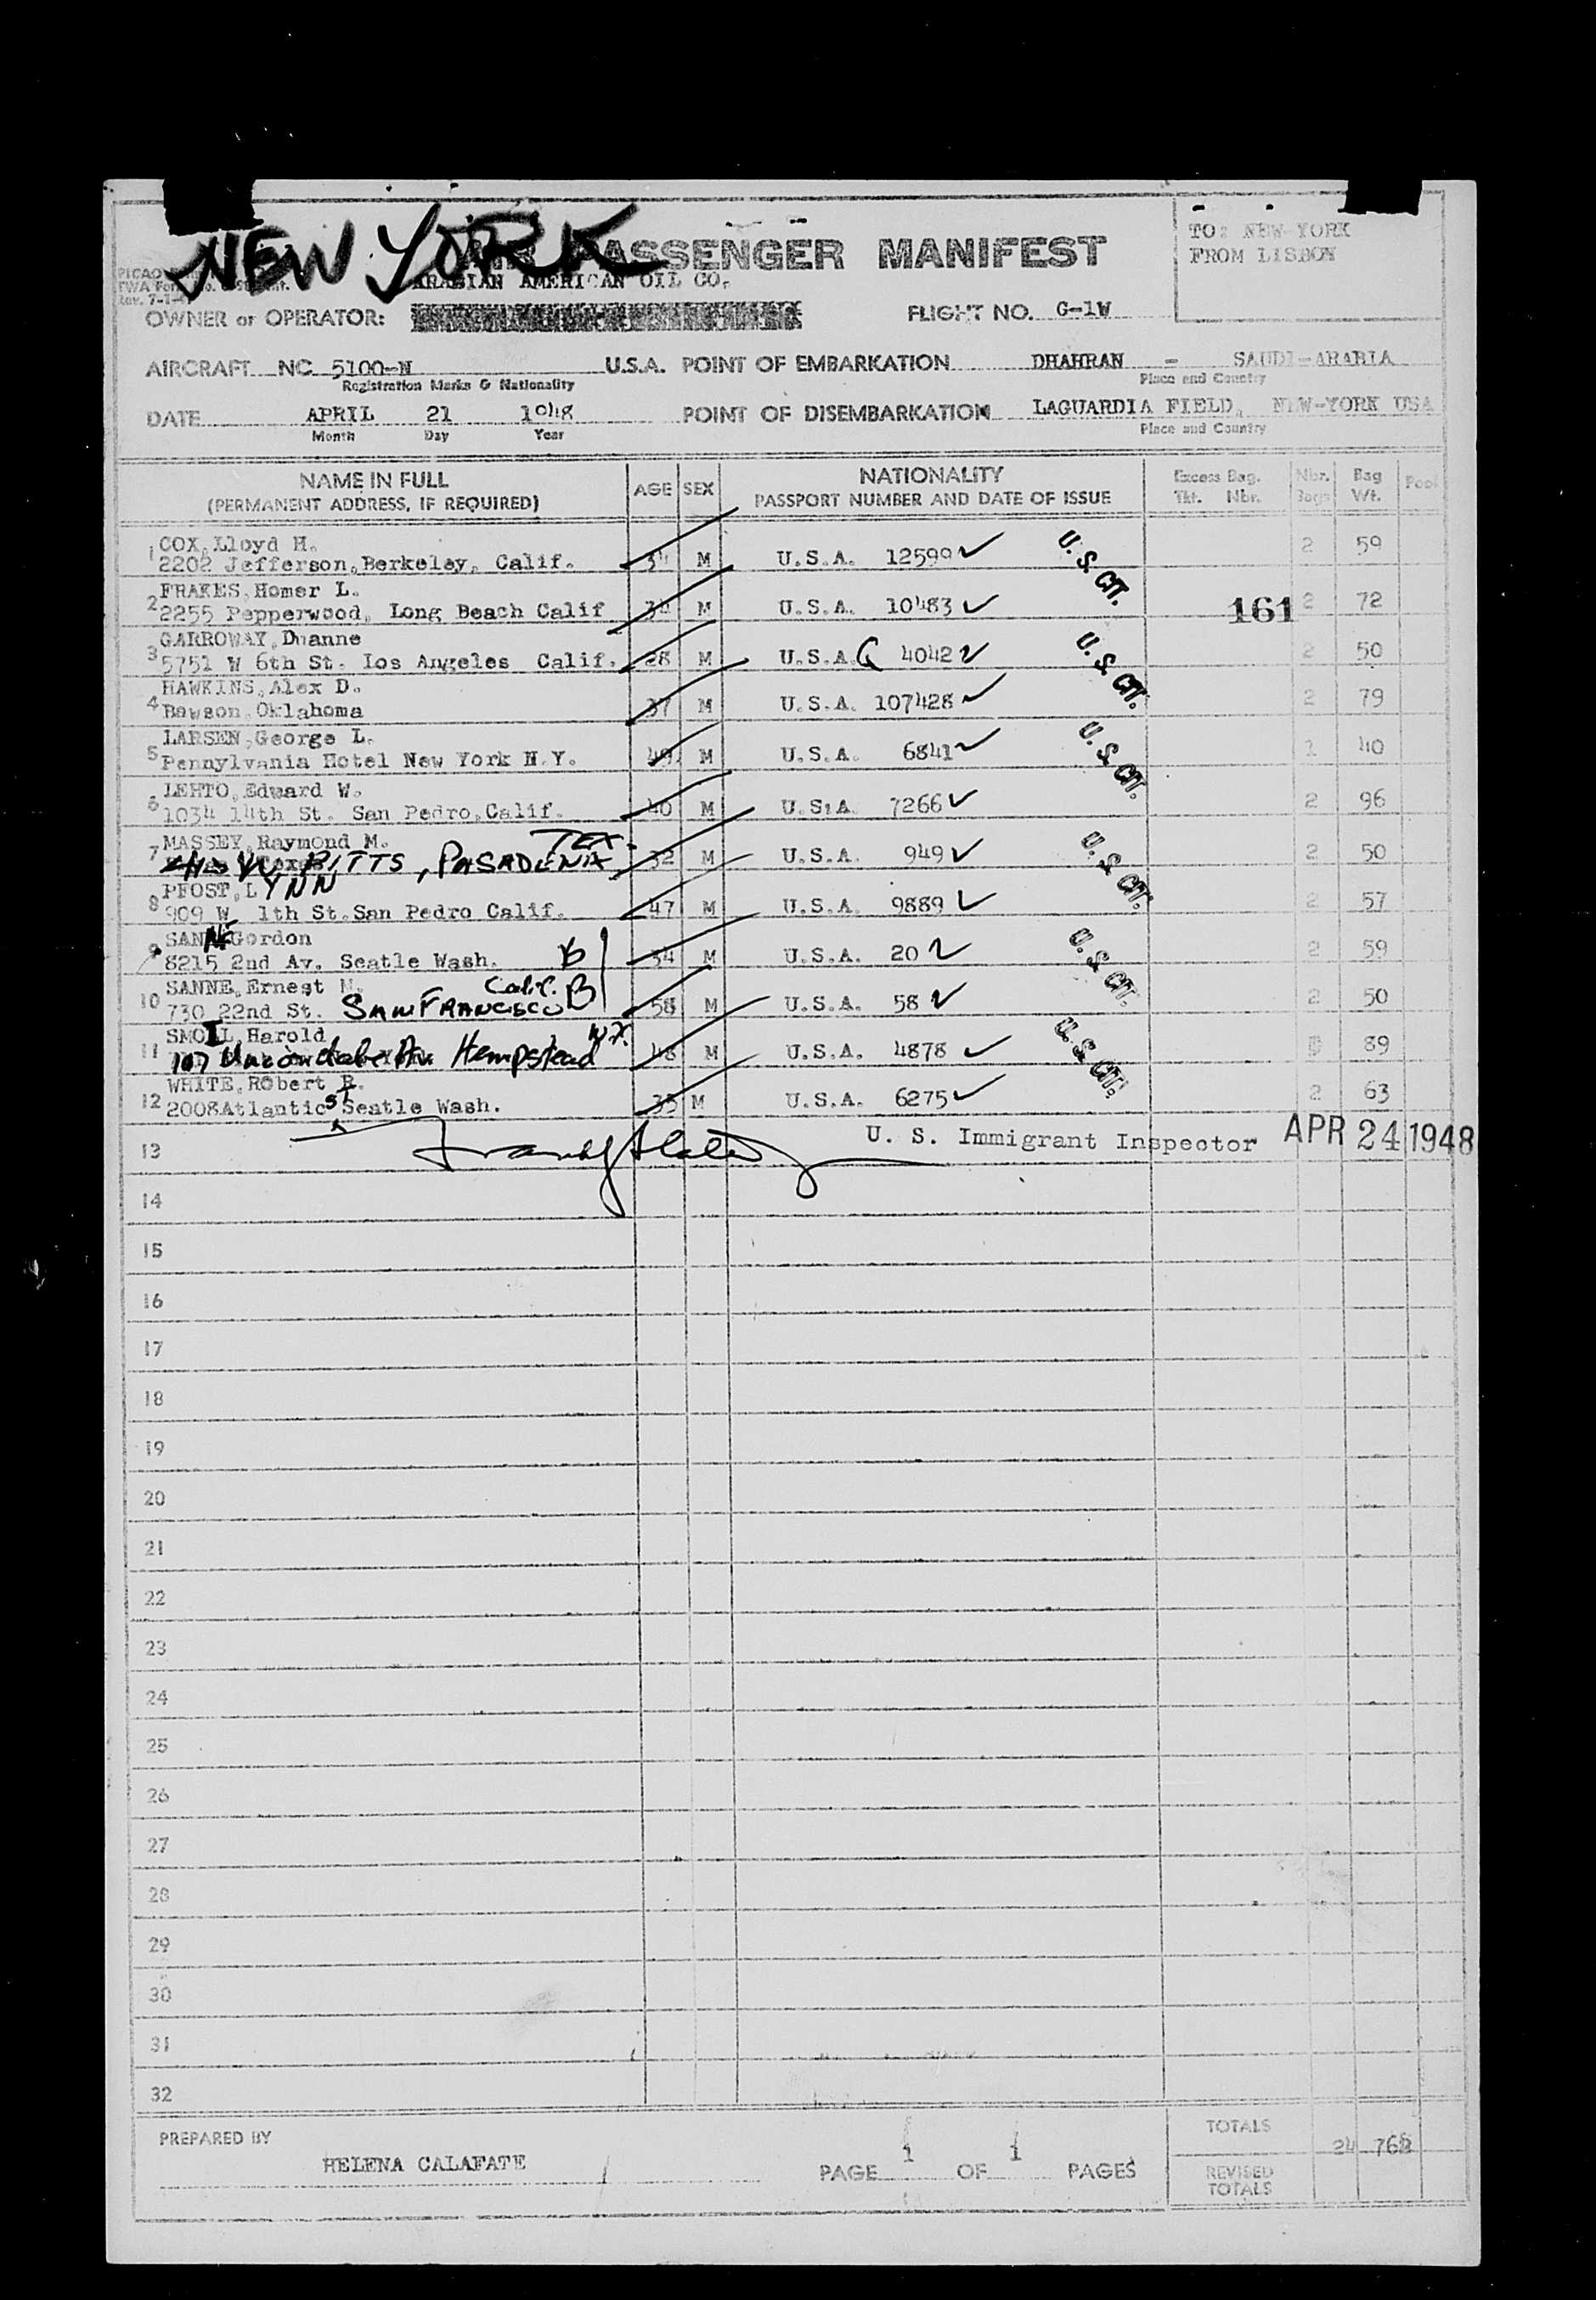 NEW YORK
PASSENGER MANIFEST
TO: NEW YORK
FROM LISBON
PICAO
TWA Form
Rev. 7-1-
ARABIAN AMERICAN OIL CO.
OWNER or OPERATOR:
FLIGHT NO. G-1W
AIRCRAFT NC 5100-N U.S.A. POINT OF EMBARKATION DHAHRAN - SAUDI-ARABIA
Registration Marks & Nationality Place and Country
DATE APRIL 21 1948 POINT OF DISEMBARKATION LAGUARDIA FIELD, NEW-YORK USA
Month Day Year Place and Country
NAME IN FULL AGE SEX NATIONALITY Excess Bag. Nbr. Bag Pool
(PERMANENT ADDRESS, IF REQUIRED) PASSPORT NUMBER AND DATE OF ISSUE Tkt. Nbr. Bags Wt.
1 COX, Lloyd H.
2202 Jefferson, Berkeley, Calif. 34 M U.S.A. 12599 U.S. CIT. 2 59
2 FRAKES, Homer L.
2255 Pepperwood, Long Beach Calif 34 M U.S.A. 10483 161 2 72
3 GARROWAY, Duanne
5751 W 6th St. Los Angeles Calif. 28 M U.S.A. 4042 U.S. CIT. 2 50
4 HAWKINS, Alex D.
Bawson, Oklahoma 37 M U.S.A. 107428 2 79
5 LARSEN, George L.
Pennylvania Hotel New York N.Y. 49 M U.S.A. 6841 U.S. CIT. 1 40
6 LEHTO, Edward W.
1034 14th St. San Pedro, Calif. 40 M U.S.A. 7266 2 96
7 MASSEY, Raymond M. TEX.
W. PITTS, PASADENA 32 M U.S.A. 949 U.S. CIT. 2 50
8 PFOST, LYNN
909 W. 1th St. San Pedro Calif. 47 M U.S.A. 9889 2 57
9 SANNE Gordon
8215 2nd Av. Seatle Wash. B 34 M U.S.A. 20 U.S. CIT. 2 59
10 SANNE, Ernest M. Calif.
730 22nd St. SAN FRANCISCO B 58 M U.S.A. 58 2 50
11 SMOIL, Harold N.Y.
107 Hempstead 48 M U.S.A. 4878 U.S. CIT. 89
12 WHITE, RObert R.
2008Atlantic St Seatle Wash. 35 M U.S.A. 6275 2 63
13 U. S. Immigrant Inspector APR 24 1948
14
15
16
17
18
19
20
21
22
23
24
25
26
27
28
29
30
31
32
PREPARED BY
HELENA CALAFATE
PAGE 1 OF 1 PAGES
TOTALS 24
REVISED
TOTALS